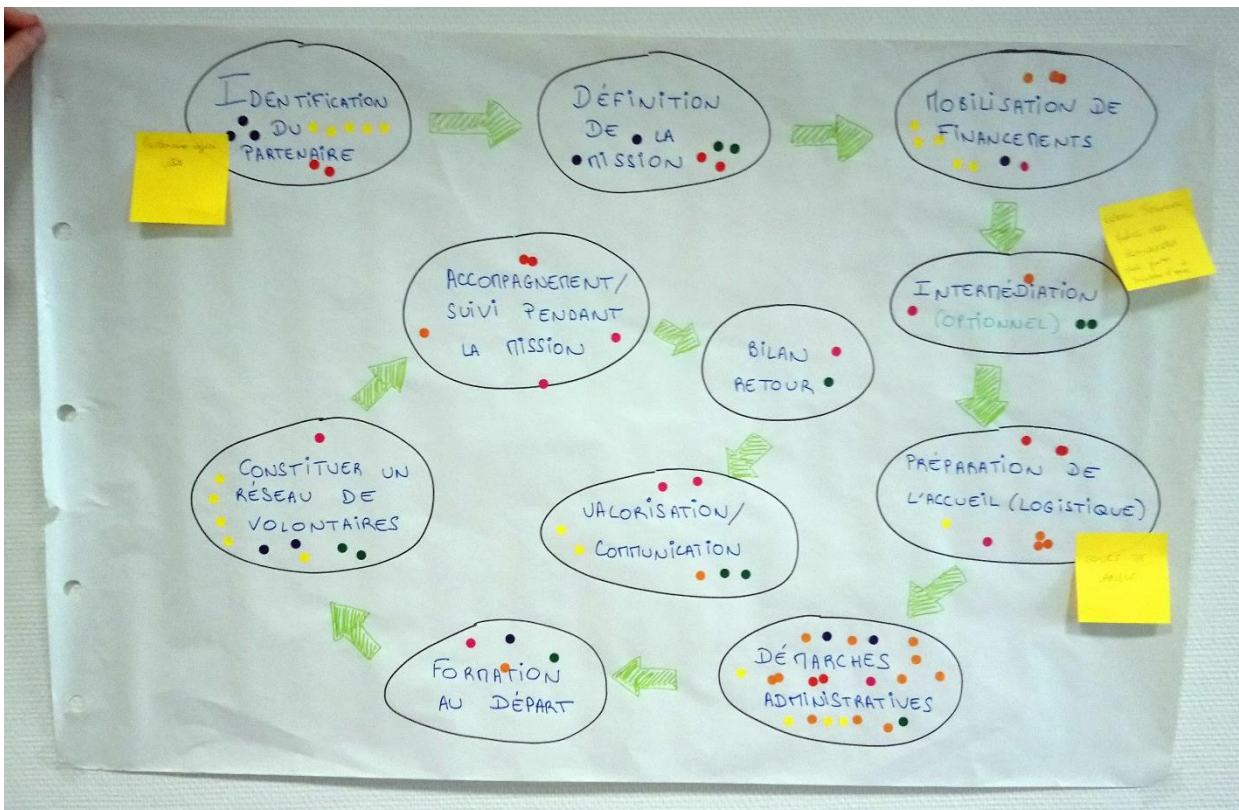 IDENTIFICATION
DU
PARTENAIRE
DÉFINITION
DE LA
MISSION
MOBILISATION DE
FINANCEMENTS
INTERMÉDIATION
(OPTIONNEL)
PRÉPARATION DE
L'ACCUEIL (LOGISTIQUE)
DÉMARCHES
ADMINISTRATIVES
FORMATION
AU DÉPART
CONSTITUER UN
RÉSEAU DE
VOLONTAIRES
ACCOMPAGNEMENT/
SUIVI PENDANT
LA MISSION
BILAN
RETOUR
VALORISATION/
COMMUNICATION